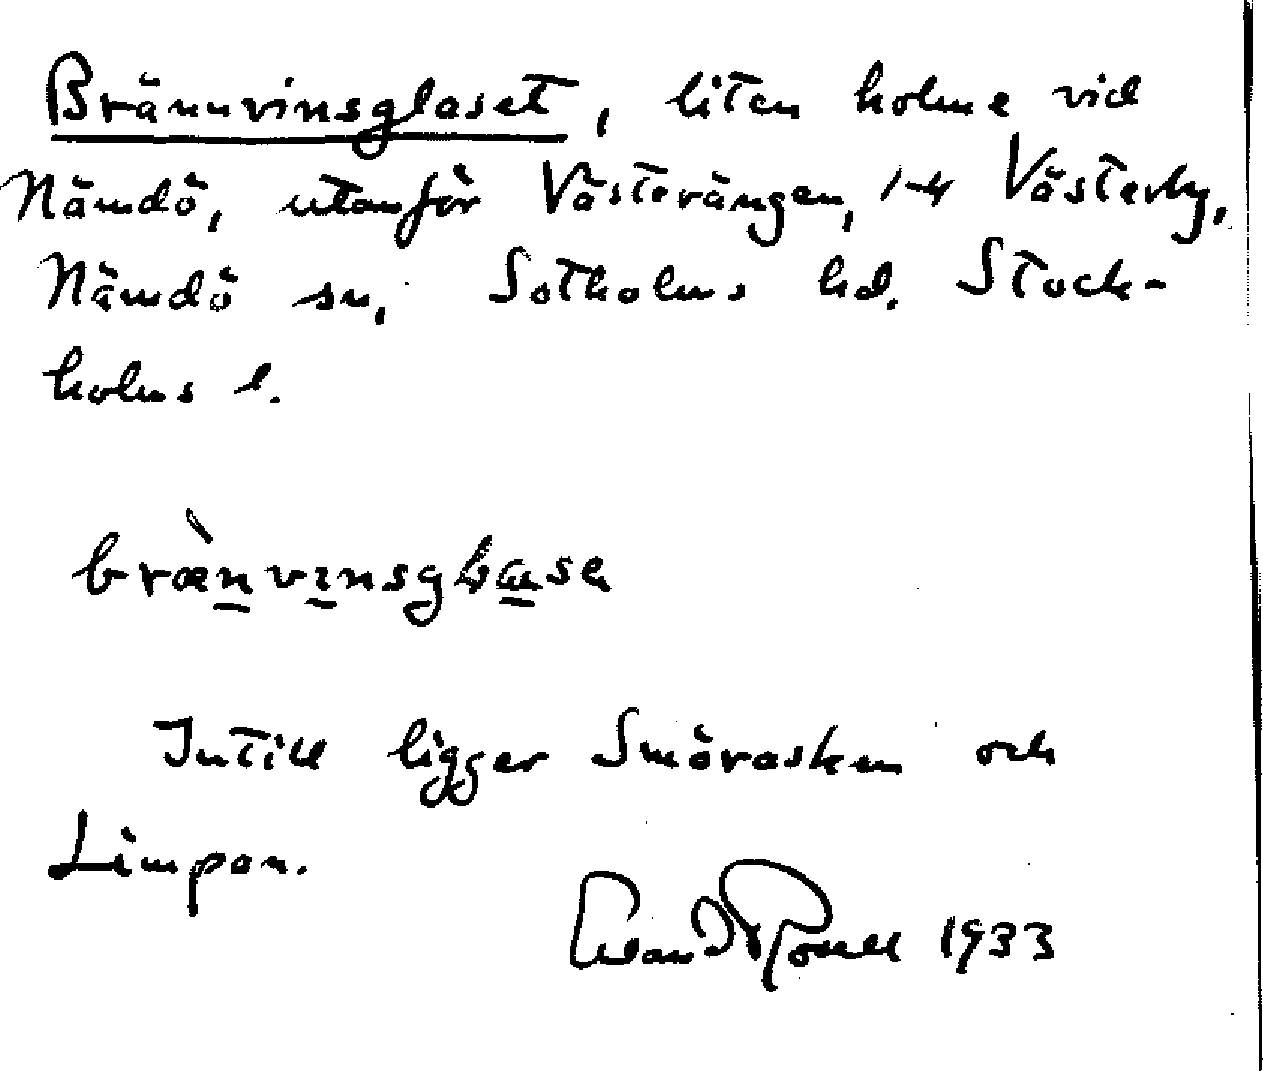 Brännvinsglaset, liten holme vid
Nämdö, utanför Västerängen, 1-4 Västerby,
Nämdö sn, Sotholms hd. Stock-
holms l.
brænvinsgla
Intill ligger Smörasken och
Limpan.
1933